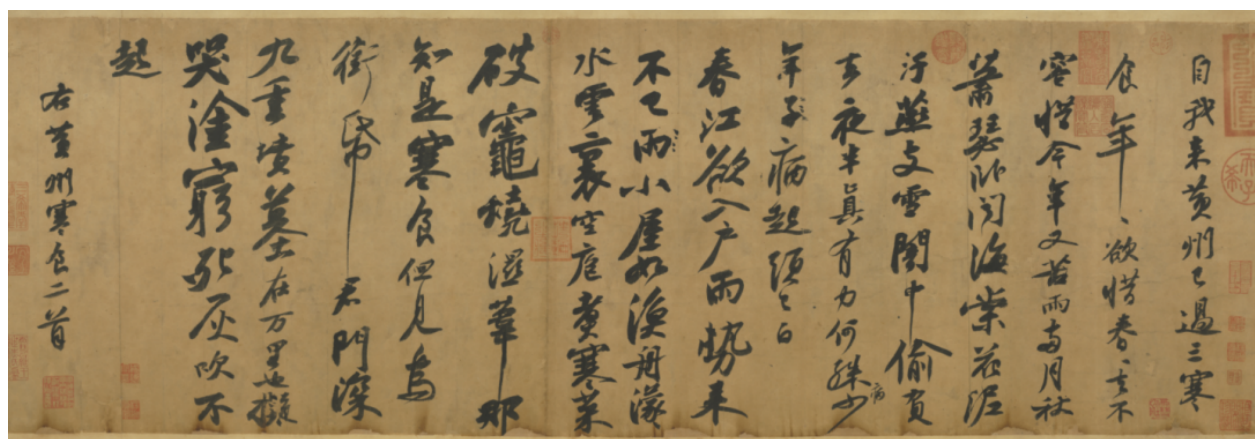 自我來黃州已過三寒
食年、欲惜春、去不
容惜今年又苦雨兩月秋
蕭瑟臥聞海棠花泥
污燕支雪闇中偷負
去夜半真有力何殊病少
年子病起頭已白
春江欲入戶雨勢來
不已雨小屋如漁舟濛
水雲裏空庖煮寒菜
破竈燒濕葦那
知是寒食但見烏
銜帋君門深
九重墳墓在万里也擬
哭塗窮死灰吹不
起
右黃州寒食二首